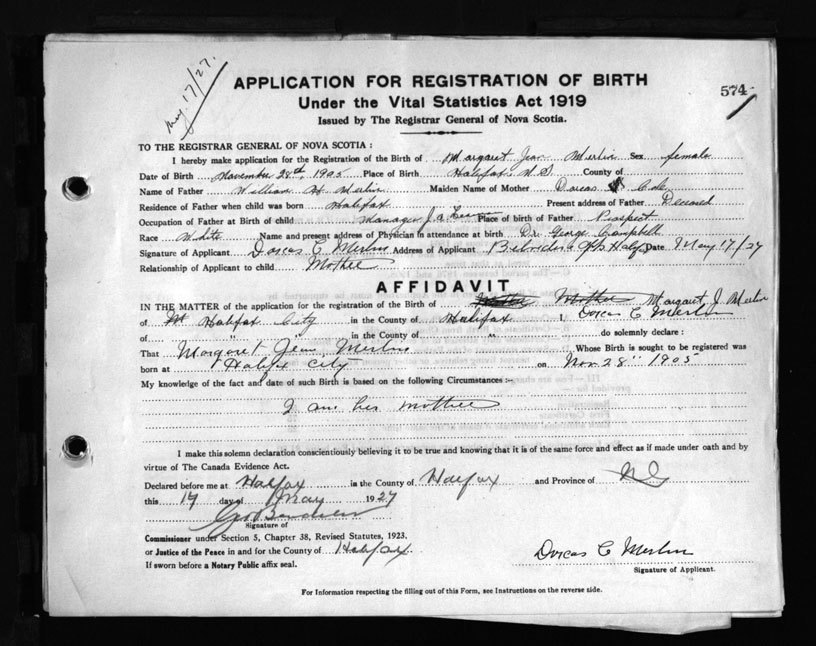 May 17/27.
APPLICATION FOR REGISTRATION OF BIRTH
574
Under the Vital Statistics Act 1919
Issued by The Registrar General of Nova Scotia.
TO THE REGISTRAR GENERAL OF NOVA SCOTIA:
I hereby make application for the Registration of the Birth of Margaret Jean Merlin Sex female
Date of Birth November 28th, 1905 Place of Birth Halifax N.S County of
Name of Father William H. Merlin Maiden Name of Mother Dorcas Cole
Residence of Father when child was born Halifax Present address of Father Deceased
Occupation of Father at Birth of child Manager Place of Birth of Father Prospect
Race White Name and present address of Physician in attendance at birth Dr. George Campbell
Signature of Applicant Dorcas C. Merlin Address of Applicant Halifax Date May 17/27
Relationship of Applicant to child Mother
AFFIDAVIT
IN THE MATTER of the application for the registration of the Birth of Mother Margaret J. Merlin
of Halifax City in the County of Halifax I, Dorcas C Merlin
of " in the County of " do solemnly declare:
That Margaret Jean Merlin Whose Birth is sought to be registered was
born at Halifax City on Nov 28" 1905
My knowledge of the fact and date of such Birth is based on the following Circumstances:-
I am her mother
I make this solemn declaration conscientiously believing it to be true and knowing that it is of the same force and effect as if made under oath and by
virtue of The Canada Evidence Act.
Declared before me at Halifax in the County of Halifax and Province of NS
this 17 day of May 1927
Signature of
Commissioner under Section 5, Chapter 38, Revised Statutes, 1923.
or Justice of the Peace in and for the County of Halifax.
If sworn before a Notary Public affix seal.
Dorcas C Merlin
Signature of Applicant.
For Information respecting the filling out of this Form, see Instructions on the reverse side.